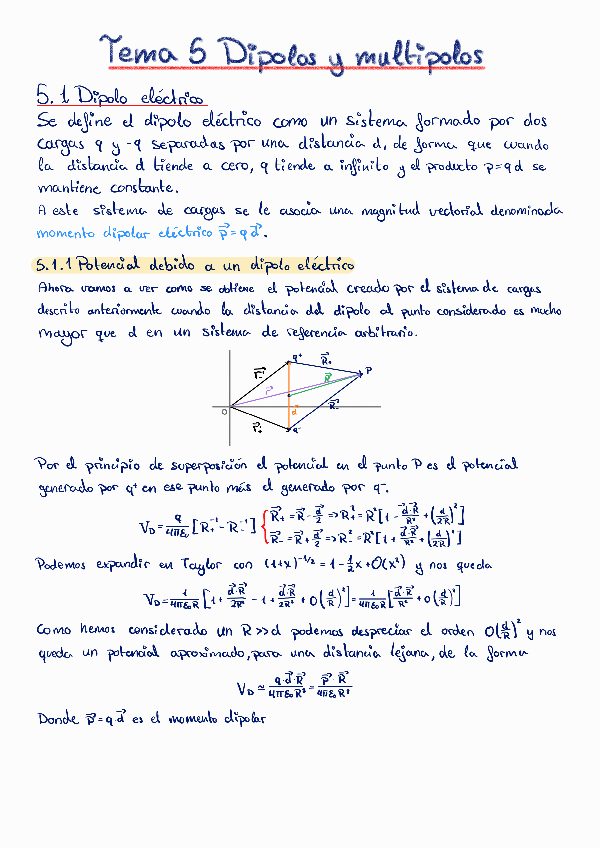 Tema 5 Dipolos y multipolos
5.1 Dipolo eléctrico
Se define el dipolo eléctrico como un sistema formado por dos
cargas q y -q separadas por una distancia d, de forma que cuando
la distancia d tiende a cero, q tiende a infinito y el producto p=qd se
mantiene constante.
A este sistema de cargas se le asocia una magnitud vectorial denominada
momento dipolar eléctrico p⃗=qd⃗.
5.1.1 Potencial debido a un dipolo eléctrico
Ahora vamos a ver como se obtiene el potencial creado por el sistema de cargas
descrito anteriormente cuando la distancia del dipolo al punto considerado es mucho
mayor que d en un sistema de referencia arbitrario.
q⁺ R⃗₊ P
r⃗₋ R⃗
r⃗
O d⃗ R⃗₋
r⃗₊ q⁻
Por el principio de superposición el potencial en el punto P es el potencial
generado por q⁺ en ese punto más el generado por q⁻.
R⃗₊ = R⃗ - d⃗/2 => R₊² = R²[1 - d⃗·R⃗/R² + (d/2R)²]
V_D = q/4πε₀ [R₊⁻¹ - R₋⁻¹]
R⃗₋ = R⃗ + d⃗/2 => R₋² = R²[1 + d⃗·R⃗/R² + (d/2R)²]
Podemos expandir en Taylor con (1+x)^(-1/2) = 1 - ½x + O(x²) y nos queda
V_D = 1/4πε₀R [1 + d⃗·R⃗/2R² - 1 + d⃗·R⃗/2R² + O(d/R)²] = 1/4πε₀R [d⃗·R⃗/R² + O(d/R)²]
Como hemos considerado un R>>d podemos despreciar el orden O(d/R)² y nos
queda un potencial aproximado, para una distancia lejana, de la forma
V_D ≃ q·d⃗·R⃗/4πε₀R³ = p⃗·R⃗/4πε₀R³
Donde p⃗=q·d⃗ es el momento dipolar